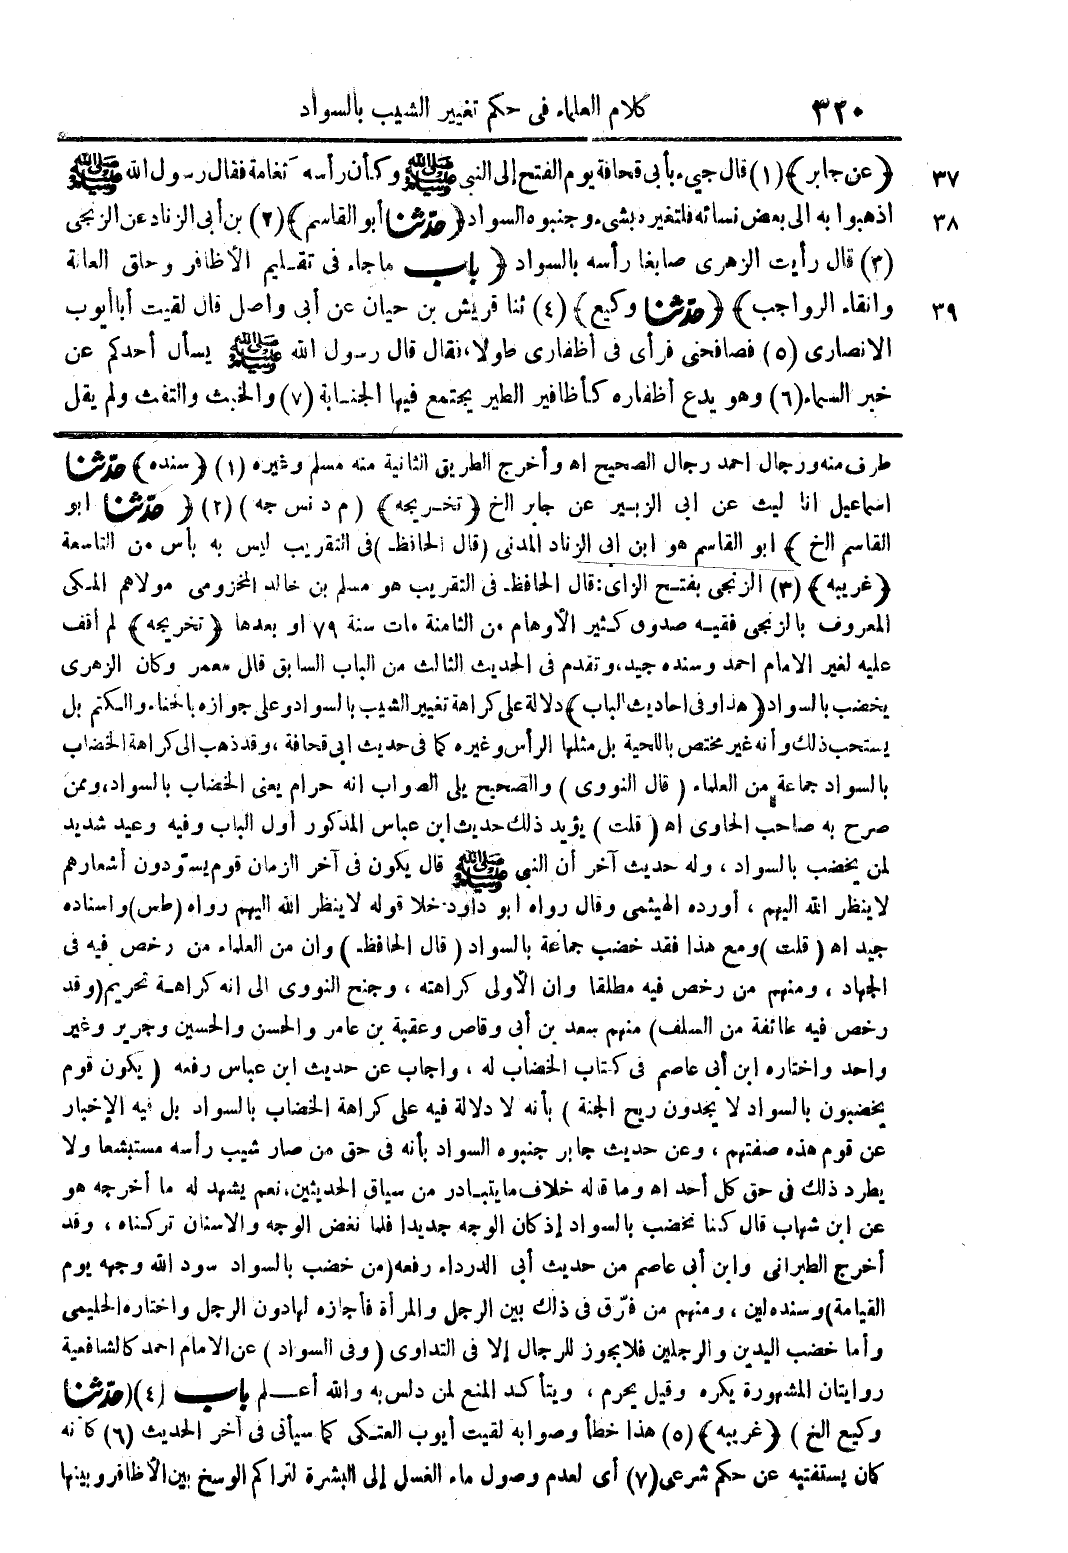 ٣٢٠ كلام العلماء فى حكم تغيير الشيب بالسواد
٣٧ ﴿ عن جابر ﴾ (١) قال جىء بأبى قحافة يوم الفتح إلى النبى ﷺ وكأن رأسه ثغامة فقال رسول الله ﷺ
٣٨ اذهبوا به الى بعض نسائه فلتغيره بشىء وجنبوه السواد ﴿ حدّثنا أبو القاسم ﴾ (٢) بن أبى الزناد عن الزنجى
(٣) قال رأيت الزهرى صابغا رأسه بالسواد ﴿ باب ماجاء فى تقليم الأظافر وحلق العانة
٣٩ وانقاء الرواجب ﴾ ﴿ حدّثنا وكيع ﴾ (٤) ثنا قريش بن حيان عن أبى واصل قال لقيت أبا أيوب
الانصارى (٥) فصافحنى فرأى فى أظفارى طولا، فقال قال رسول الله ﷺ يسأل أحدكم عن
خبر السماء (٦) وهو يدع أظفاره كأظافير الطير يجتمع فيها الجنابة (٧) والخبث والتفث ولم يقل
طرف منه ورجال احمد رجال الصحيح اه وأخرج الطريق الثانية منه مسلم وغيره (١) ﴿ سنده ﴾ حدّثنا
اسماعيل انا ليث عن ابى الزبير عن جابر الخ ﴿ تخريجه ﴾ ( م د نس جه ) (٢) ﴿ حدّثنا ابو
القاسم الخ ﴾ ابو القاسم هو ابن ابى الزناد المدنى (قال الحافظ ) فى التقريب ليس به بأس من التاسعة
﴿ غريبه ﴾ (٣) الزنجى بفتح الزاى: قال الحافظ فى التقريب هو مسلم بن خالد المخزومى مولاهم المكى
المعروف بالزنجى فقيه صدوق كثير الأوهام من الثامنة مات سنة ٧٩ او بعدها ﴿ تخريجه ﴾ لم أقف
عليه لغير الامام احمد وسنده جيد، وتقدم فى الحديث الثالث من الباب السابق قال معمر وكان الزهرى
يخضب بالسواد ﴿ هذا وفى احاديث الباب ﴾ دلالة على كراهة تغيير الشيب بالسواد وعلى جوازه بالحناء والكتم بل
يستحب ذلك وأنه غير مختص باللحية بل مثلها الرأس وغيره كما فى حديث ابى قحافة، وقد ذهب الى كراهة الخضاب
بالسواد جماعة من العلماء ( قال النووى ) والصحيح بل الصواب انه حرام يعنى الخضاب بالسواد، وممن
صرح به صاحب الحاوى اه ( قلت ) يؤيد ذلك حديث ابن عباس المذكور أول الباب وفيه وعيد شديد
لمن يخضب بالسواد ، وله حديث آخر أن النبى ﷺ قال يكون فى آخر الزمان قوم يسوّدون أشعارهم
لا ينظر الله اليهم ، أورده الهيثمى وقال رواه ابو داود خلا قوله لا ينظر الله اليهم رواه (طس) واسناده
جيد اه ( قلت ) ومع هذا فقد خضب جماعة بالسواد ( قال الحافظ ) وان من العلماء من رخص فيه فى
الجهاد ، ومنهم من رخص فيه مطلقا وان الأولى كراهته ، وجنح النووى الى انه كراهة تحريم (وقد
رخص فيه طائفة من السلف) منهم سعد بن أبى وقاص وعقبة بن عامر والحسن والحسين وجرير وغير
واحد واختاره ابن أبى عاصم فى كتاب الخضاب له ، واجاب عن حديث ابن عباس رفعه ( يكون قوم
يخضبون بالسواد لا يجدون ريح الجنة ) بأنه لا دلالة فيه على كراهة الخضاب بالسواد بل فيه الإخبار
عن قوم هذه صفتهم ، وعن حديث جابر جنبوه السواد بأنه فى حق من صار شيب رأسه مستبشعا ولا
يطرد ذلك فى حق كل أحد اه وما قاله خلاف ما يتبادر من سياق الحديثين، نعم يشهد له ما أخرجه هو
عن ابن شهاب قال كنا نخضب بالسواد إذ كان الوجه جديدا فلما نغض الوجه والاسنان تركناه ، وقد
أخرج الطبرانى وابن أبى عاصم من حديث أبى الدرداء رفعه (من خضب بالسواد سود الله وجهه يوم
القيامة) وسنده لين ، ومنهم من فرّق فى ذلك بين الرجل والمرأة فأجازه لها دون الرجل واختاره الحليمى
وأما خضب اليدين والرجلين فلا يجوز للرجال إلا فى التداوى ( وفى السواد ) عن الامام احمد كالشافعية
روايتان المشهورة يكره وقيل يحرم ، ويتأكد المنع لمن دلس به والله أعلم باب (٤) (حدّثنا
وكيع الخ ) ﴿ غريبه ﴾ (٥) هذا خطأ وصوابه لقيت أيوب العتكى كما سيأتى فى آخر الحديث (٦) كأنه
كان يستفتيه عن حكم شرعى (٧) أى لعدم وصول ماء الغسل إلى البشرة لتراكم الوسخ بين الأظافر وبينها